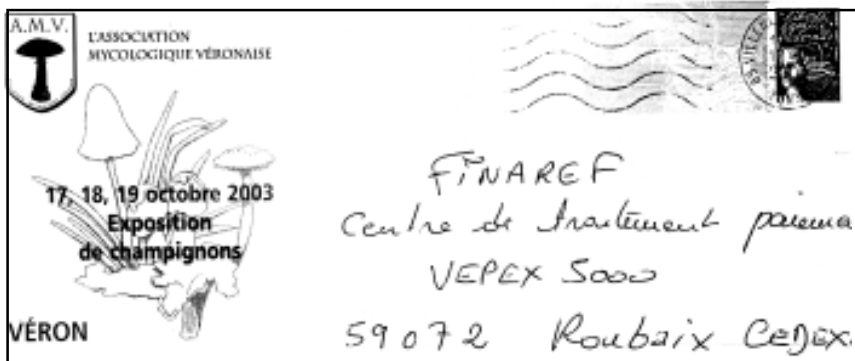 A.M.V.
L'ASSOCIATION
MYCOLOGIQUE VÉRONAISE
17, 18, 19 octobre 2003
Exposition
de champignons
VÉRON
FINAREF
Centre de traitement paiema
VEPEX 5000
59072 Roubaix CEDEX